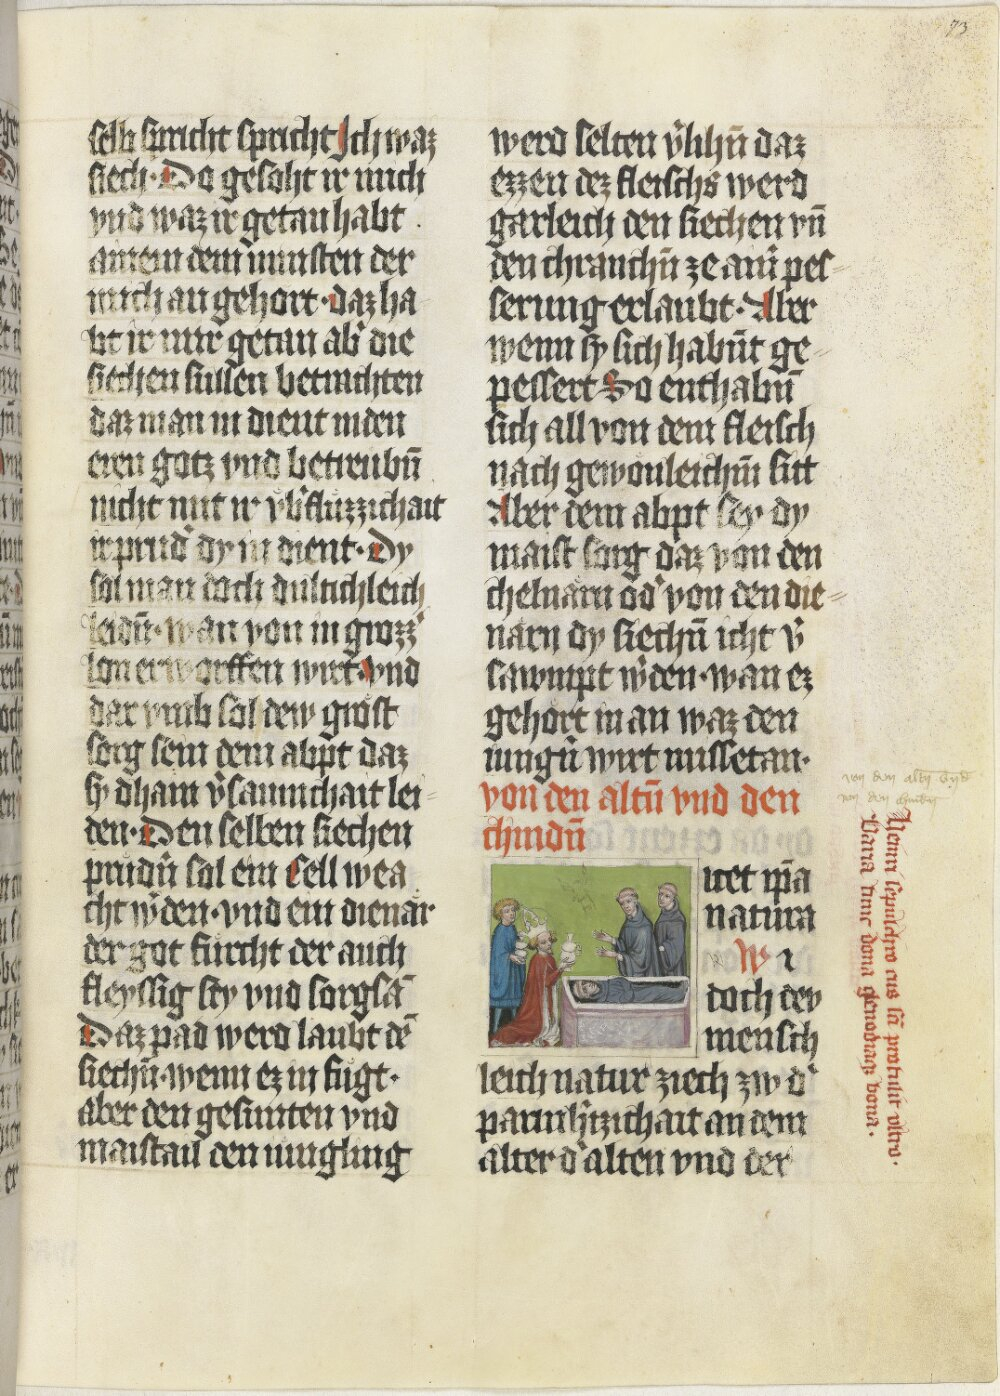 73
selb spricht spricht Ich waz
siech· Do gesoht ir mich
vnd waz ir getan habt
ainem dem minsten der
mich an gehort· daz ha
bt ir mir getan ab᷑ die
siechen sullen betrachten
daz man in dient in den
eren gotz vnd betrubn̄
nicht mit ir vb᷑fluzzichait
ir prud᷑ dy in dient· Dy
sol man doch dultichleich
leidn̄· wan von in grozz᷑
lon erworffen wirt· vnd
dar vmb sol dew grost
sorg sein dem abpt daz
sy dhain v᷑saumchait lei-
den· Den selben siechen
prudn̄ sol ein cell wea
cht w᷑den· vnd ein dienar
der got furcht der auch
fleyssig sey vnd sorgsā
Daz pad werd laubt dē
siechn̄· wenn ez in fugt·
aber den gesunten vnd
maistail den iungling
werd selten v᷑lihn̄ daz
ezzen dez fleischs werd
garleich den siechen vn̄
den chranchn̄ ze ain᷑ pes-
serung erlaubt· Aber
wenn sy sich habn̄t ge-
pessert So enthabn̄
sich all von dem fleisch
nach gewonleichm̄ sitt
Aber dem abpt sey dy
maist sorg daz von den
chelnarn od᷑ von den die-
narn dy siechn̄ icht v᷑
sawmpt w᷑den· wan ez
gehort in an waz den
iungn̄ wirt missetan·
von den altn̄ vnd den
chindn̄
icet ip̄a
natura
Wi
doch dev
mensch
leich natur ziech zw d᷑
parmh᷑tzichait an dem
alter d᷑ alten vnd der
von den altn̄ vnd
von den chindn̄
Henrici sepulchro cus sā protulit vltro·
Varia tunc dona glenodiaqz bona·